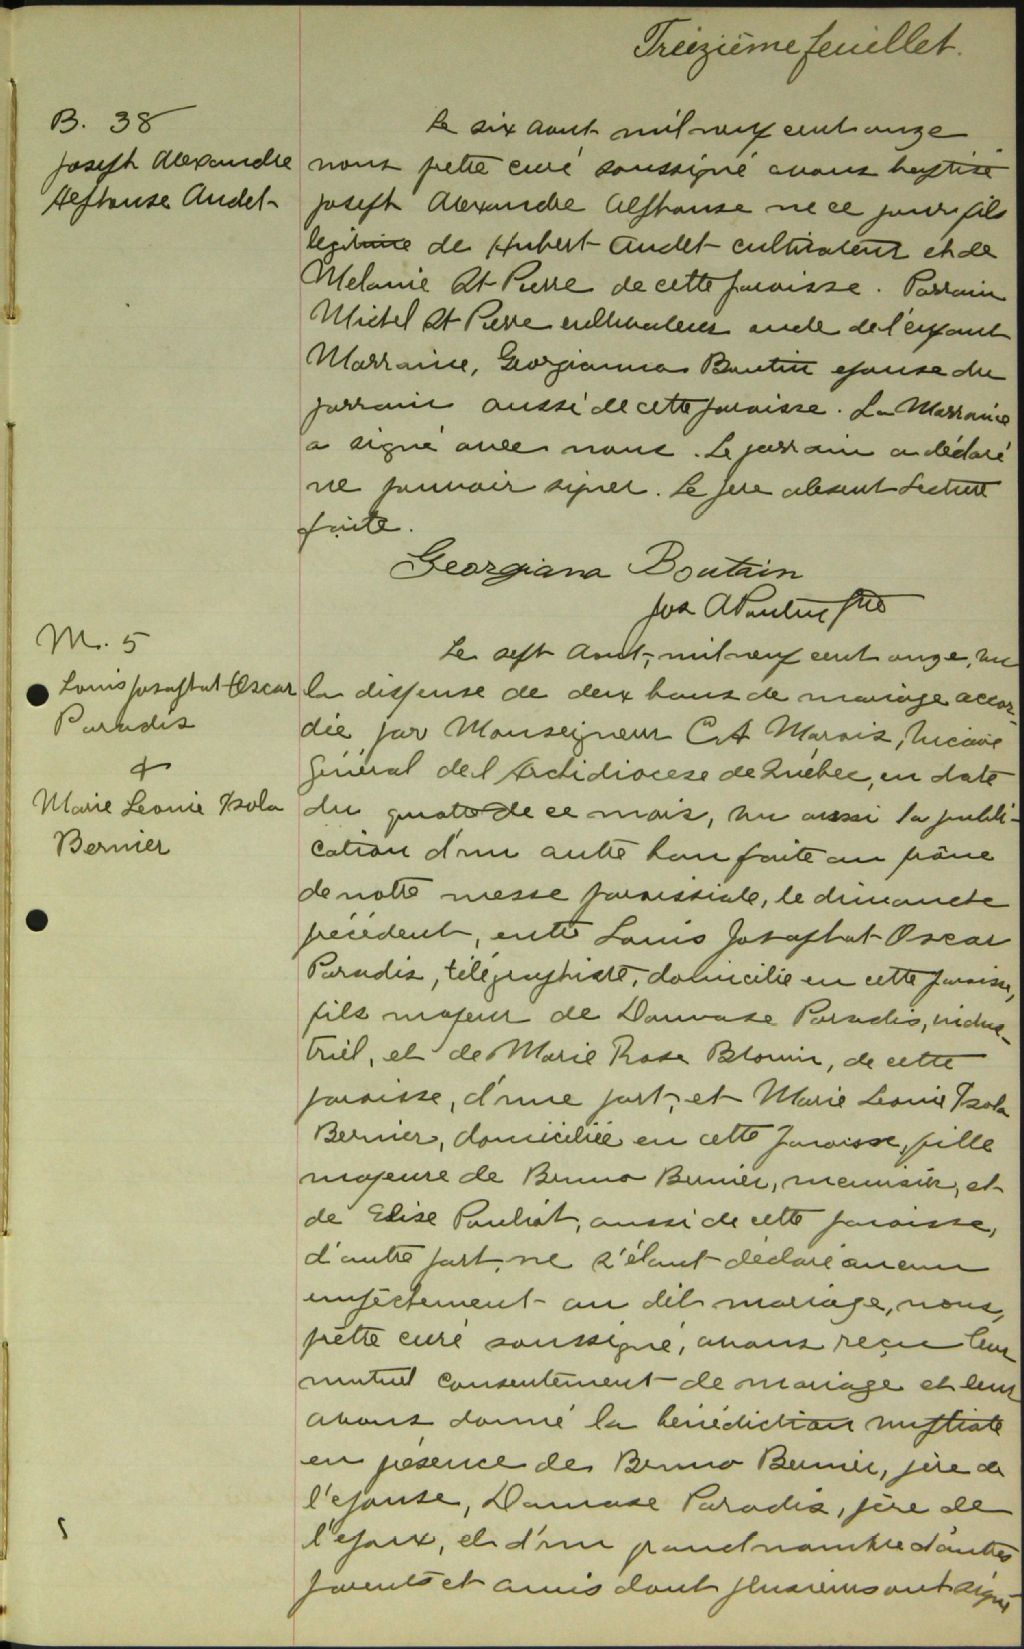 Treizième feuillet.
B. 38
Joseph Alexandre
Alphonse Audet
Le six aout mil neuf cent onze
nous prêtre curé soussigné avons baptisé
Joseph Alexandre Alphonse né ce jour fils
legitime de Hubert Audet cultivateur et de
Melanie St Pierre de cette paroisse. Parrain
Michel St Pierre cultivateur oncle de l'enfant
Marraine, Georgianna Boutin epouse du
parrain aussi de cette paroisse. La Marraine
a signé avec nous. Le parrain a déclaré
ne pouvoir signer. Le père absent Lecture
faite.
Georgiana Boutain
Jos A Poulin Ptre
M. 5
Louis Josaphat Oscar
Paradis
&
Marie Leonie Isola
Bernier
Le sept Aout, mil neuf cent onze, vu
la dispense de deux bans de mariage accor-
dée par Monseigneur C A Marois, Vicaire
Général de l'Archidiocese de Québec, en date
du quatre de ce mois, vu aussi la publi-
cation d'un autre ban faite au prône
de notre messe paroissiale, le dimanche
précédent, entre Louis Josaphat Oscar
Paradis, télégraphiste, domicilié en cette paroisse,
fils majeur de Damase Paradis, indus-
triel, et de Marie Rose Blouin, de cette
paroisse, d'une part, et Marie Leonie Isola
Bernier, domiciliée en cette paroisse, fille
majeure de Bruno Bernier, menuisier, et
de Elise Pouliot, aussi de cette paroisse,
d'autre part, ne s'étant déclaré aucun
empêchement au dit mariage, nous,
prêtre curé soussigné, avons reçu leur
mutuel consentement de mariage et leur
avons donné la bénédiction nuptiale
en présence de Bruno Bernier, père de
l'epouse, Damase Paradis, père de
l'epoux, et d'un grand nombre d'autres
parents et amis dont plusieurs ont signé